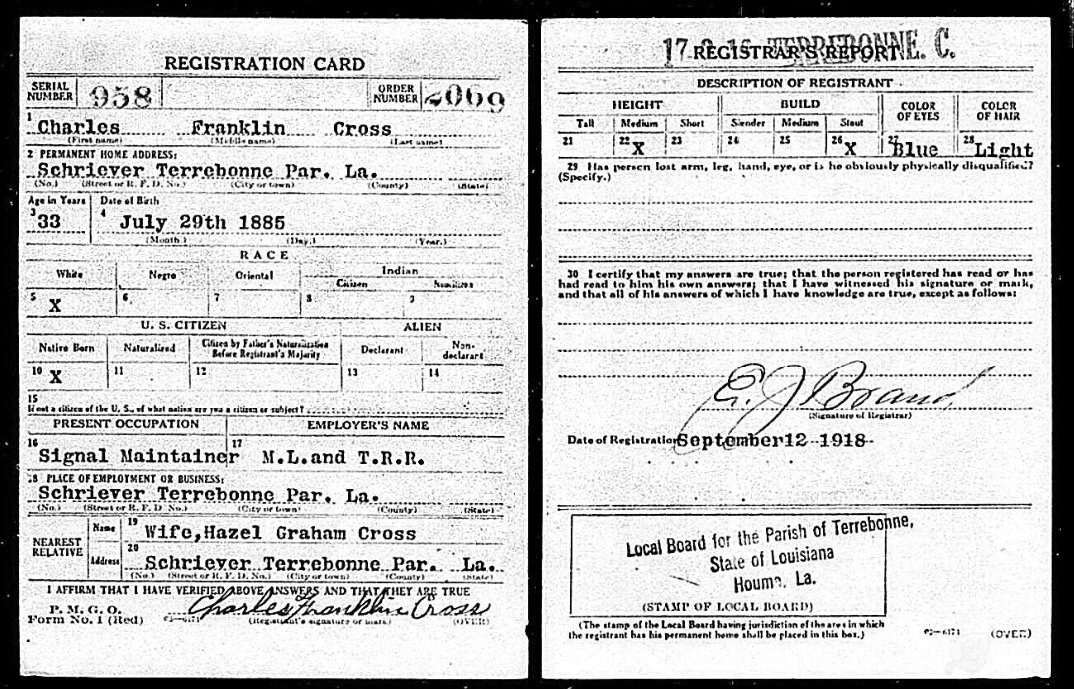 REGISTRATION CARD
SERIAL NUMBER 958 ORDER NUMBER 2069
1 Charles Franklin Cross
(First name) (Middle name) (Last name)
2 PERMANENT HOME ADDRESS:
Schriever Terrebonne Par. La.
(No.) (Street or R. F. D. No.) (City or town) (County) (State)
Age in Years Date of Birth
3 33 4 July 29th 1885
(Month.) (Day.) (Year.)
RACE
White Negro Oriental Indian
Citizen Noncitizen
5 X 6 7 8 9
U. S. CITIZEN ALIEN
Native Born Naturalized Citizen by Father's Naturalization Before Registrant's Majority Declarant Non-declarant
10 X 11 12 13 14
15
If not a citizen of the U. S., of what nation are you a citizen or subject?
PRESENT OCCUPATION EMPLOYER'S NAME
16 Signal Maintainer 17 M.L.and T.R.R.
18 PLACE OF EMPLOYMENT OR BUSINESS:
Schriever Terrebonne Par. La.
(No.) (Street or R. F. D. No.) (City or town) (County) (State)
NEAREST RELATIVE
Name 19 Wife,Hazel Graham Cross
Address 20 Schriever Terrebonne Par. La.
(No.) (Street or R. F. D. No.) (City or town) (County) (State)
I AFFIRM THAT I HAVE VERIFIED ABOVE ANSWERS AND THAT THEY ARE TRUE
P. M. G. O.
Form No. 1 (Red) Charles Franklin Cross
(Registrant's signature or mark) (OVER)
REGISTRAR'S REPORT
TERREBONNE. C.
DESCRIPTION OF REGISTRANT
HEIGHT BUILD COLOR OF EYES COLOR OF HAIR
Tall Medium Short Slender Medium Stout
21 22 X 23 24 25 26 X 27 Blue 28 Light
29 Has person lost arm, leg, hand, eye, or is he obviously physically disqualified?
(Specify.)
30 I certify that my answers are true; that the person registered has read or has
had read to him his own answers; that I have witnessed his signature or mark,
and that all of his answers of which I have knowledge are true, except as follows:
E. J. Brand
(Signature of Registrar)
Date of Registration September 12 1918
Local Board for the Parish of Terrebonne,
State of Louisiana
Houma, La.
(STAMP OF LOCAL BOARD)
(The stamp of the Local Board having jurisdiction of the area in which
the registrant has his permanent home shall be placed in this box.)
(OVER)